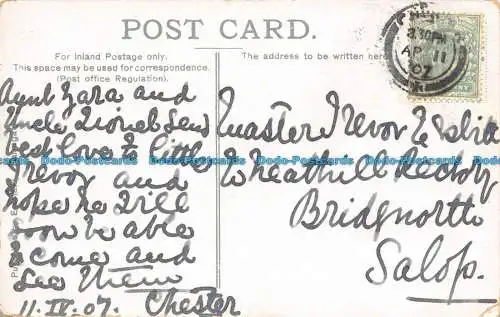 POST CARD.
For Inland Postage only.
This space may be used for correspondence.
(Post office Regulation).
The address to be written here
Aunt Zara and
Uncle Lionel send
best love to little
Trevor and
hope he will
soon be able
to come and
see them
11.IV.07. Chester
Master Trevor
Wheathill Rectory
Bridgnorth
Salop.
3.30PM
AP 11
07
Dodo-Postcards Dodo-Postcards Dodo-Postcards Dodo-Postcards